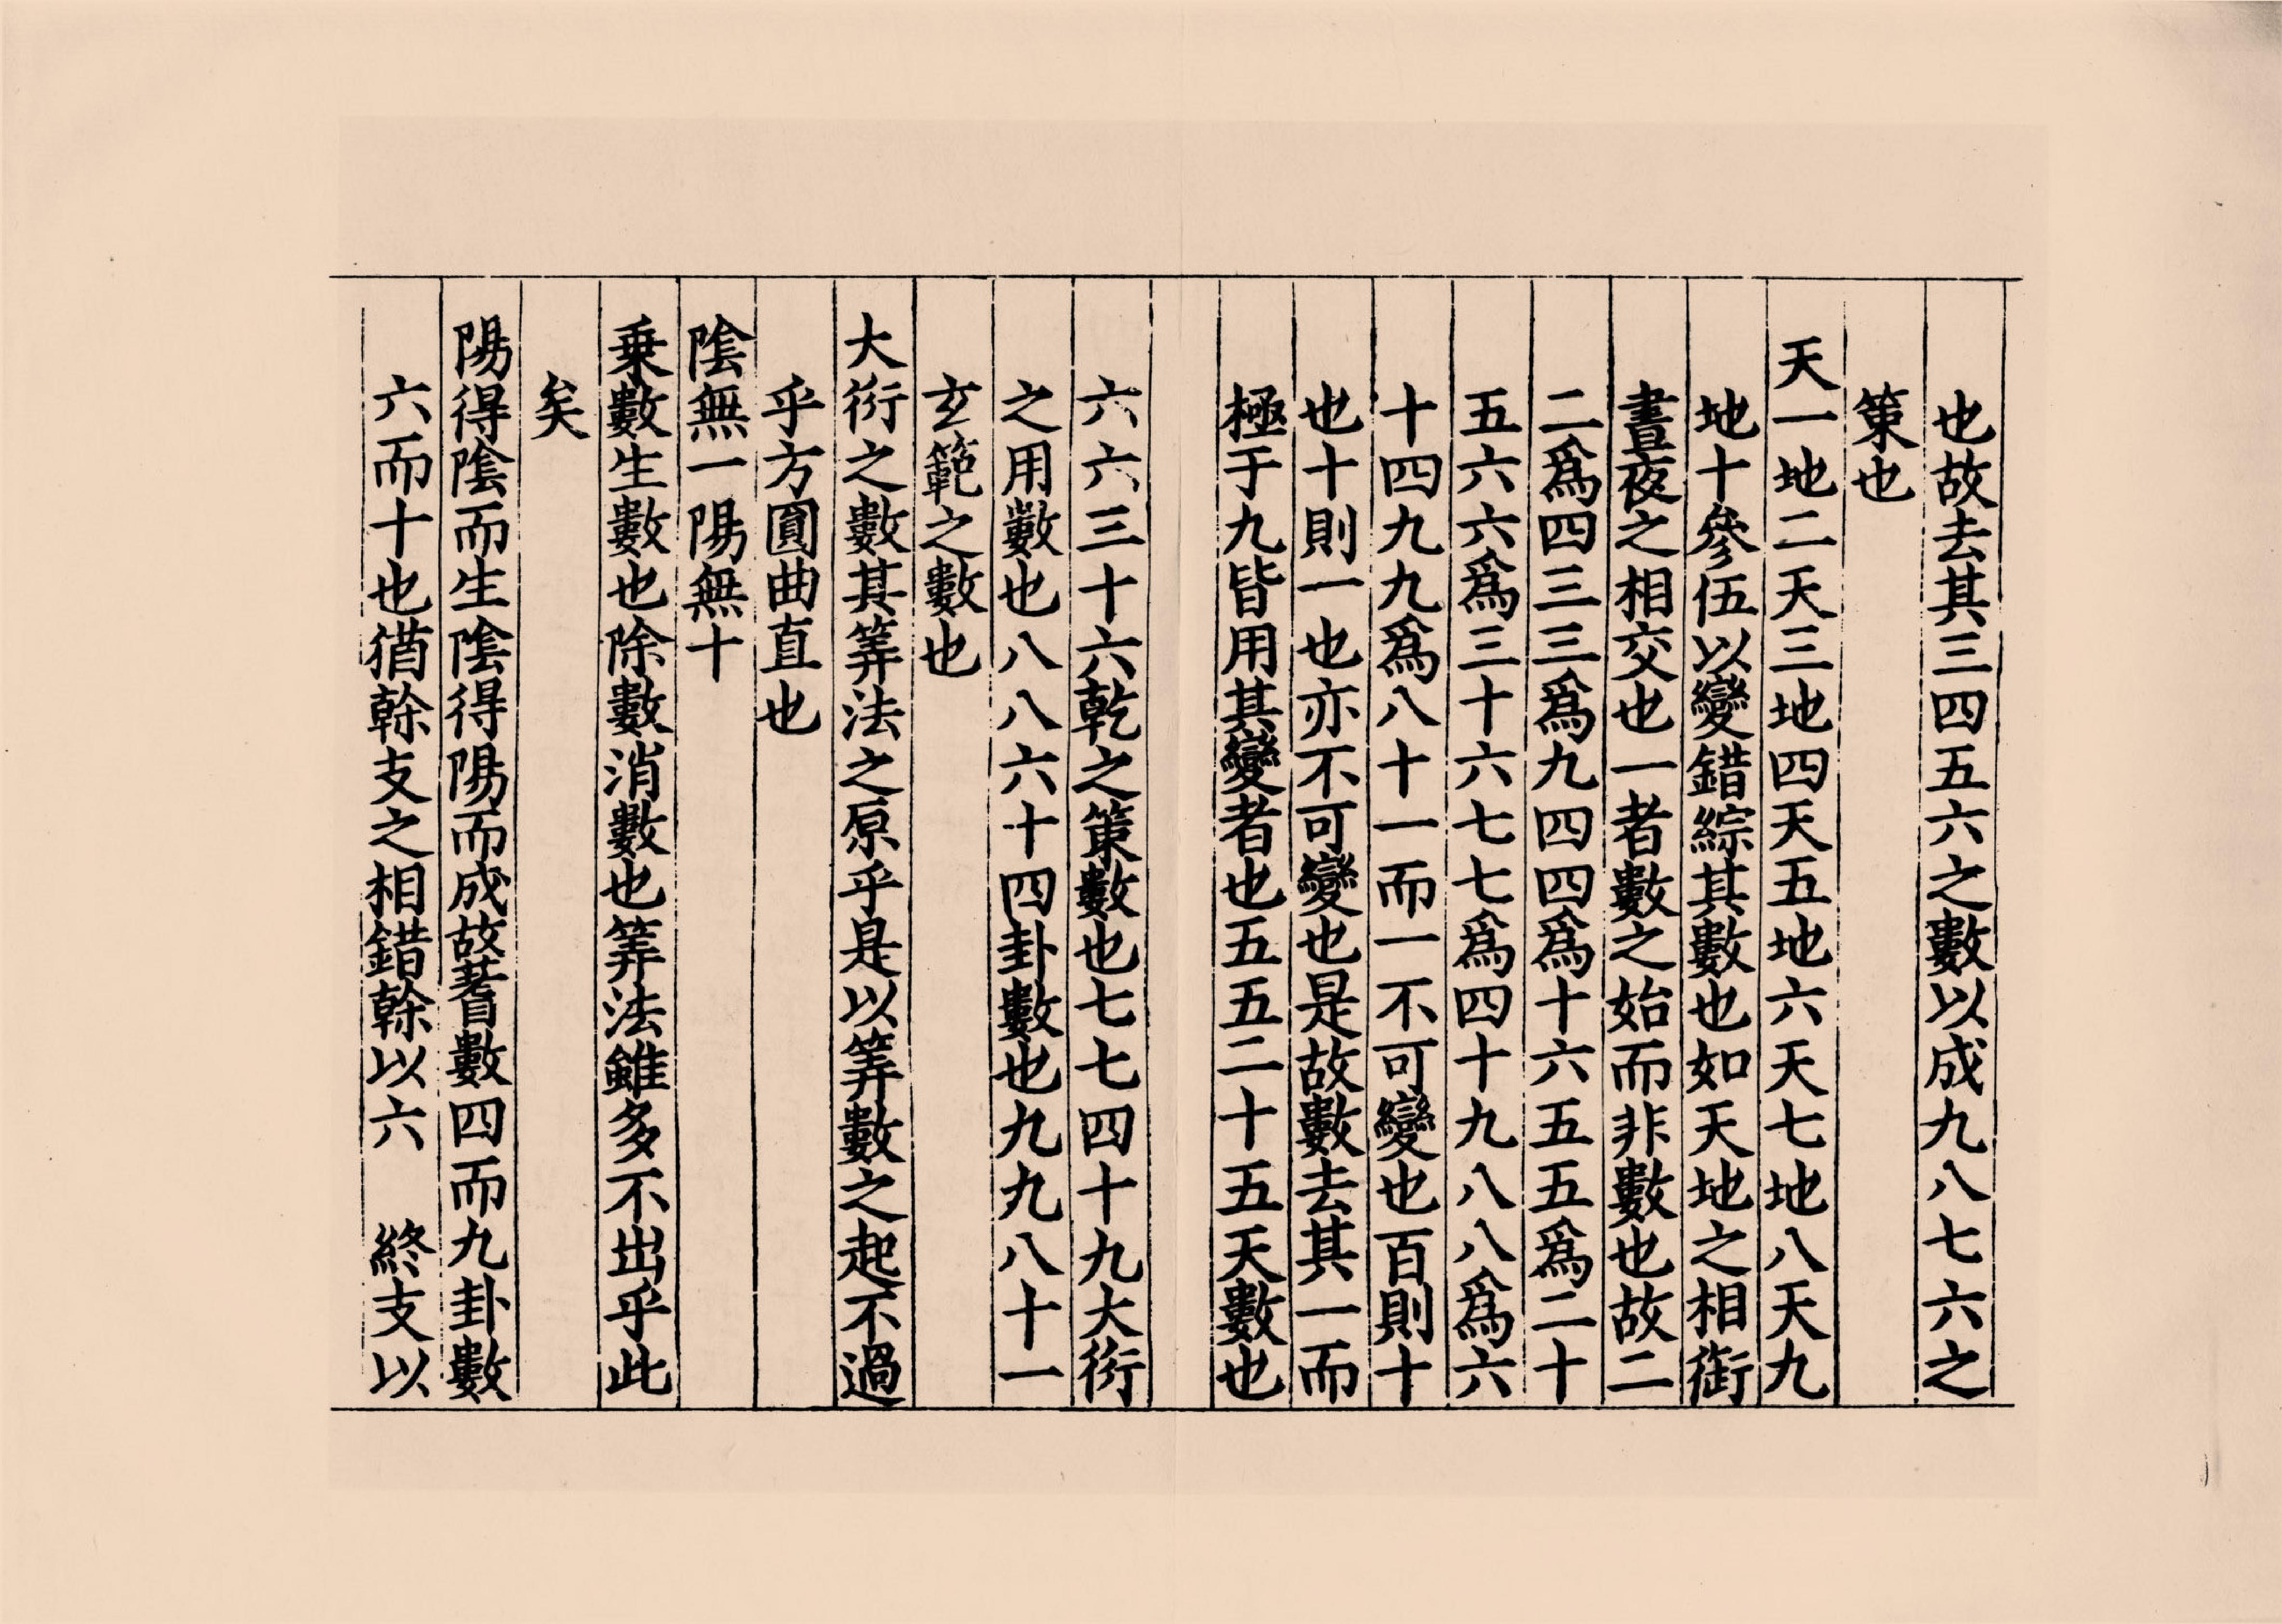 也故去其三四五六之數以成九八七六之
策也
天一地二天三地四天五地六天七地八天九
地十參伍以變錯綜其數也如天地之相銜
晝夜之相交也一者數之始而非數也故二
二爲四三三爲九四四爲十六五五爲二十
五六六爲三十六七七爲四十九八八爲六
十四九九爲八十一而一不可變也百則十
也十則一也亦不可變也是故數去其一而
極于九皆用其變者也五五二十五天數也
六六三十六乾之策數也七七四十九大衍
之用數也八八六十四卦數也九九八十一
玄範之數也
大衍之數其筭法之原乎是以筭數之起不過
乎方圓曲直也
陰無一陽無十
乗數生數也除數消數也筭法雖多不出乎此
矣
陽得陰而生陰得陽而成故蓍數四而九卦數
六而十也猶榦支之相錯榦以六 終支以